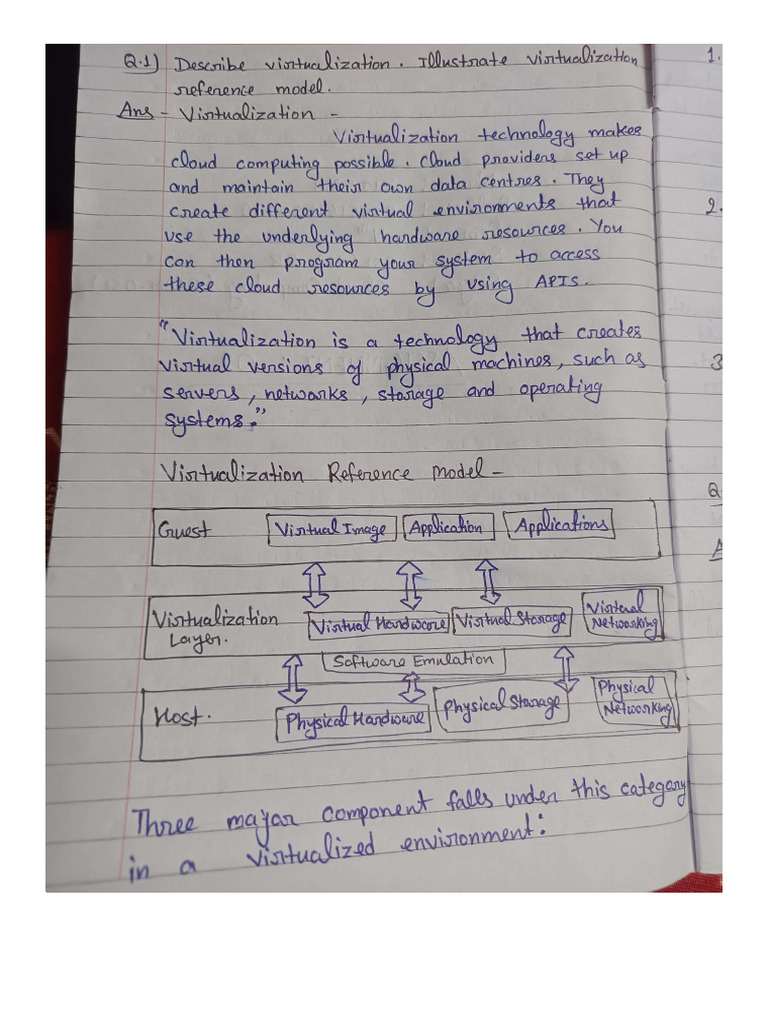 Q.1) Describe virtualization. Illustrate virtualization
reference model.
Ans - Virtualization -
Virtualization technology makes
cloud computing possible. cloud providers set up
and maintain their own data centres. They
create different virtual environments that
use the underlying hardware resources. You
can then program your system to access
these cloud resources by using APIS.
"Virtualization is a technology that creates
virtual versions of physical machines, such as
servers, networks, storage and operating
systems."
Virtualization Reference model -
Guest
Virtual Image
Application
Applications
Virtualization
Layer.
Virtual Hardware
Virtual Storage
Virtual
Networking
Software Emulation
Host.
Physical Hardware
Physical Storage
Physical
Networking
Three major component falls under this category
in a virtualized environment:
1.
2.
3
Q
A